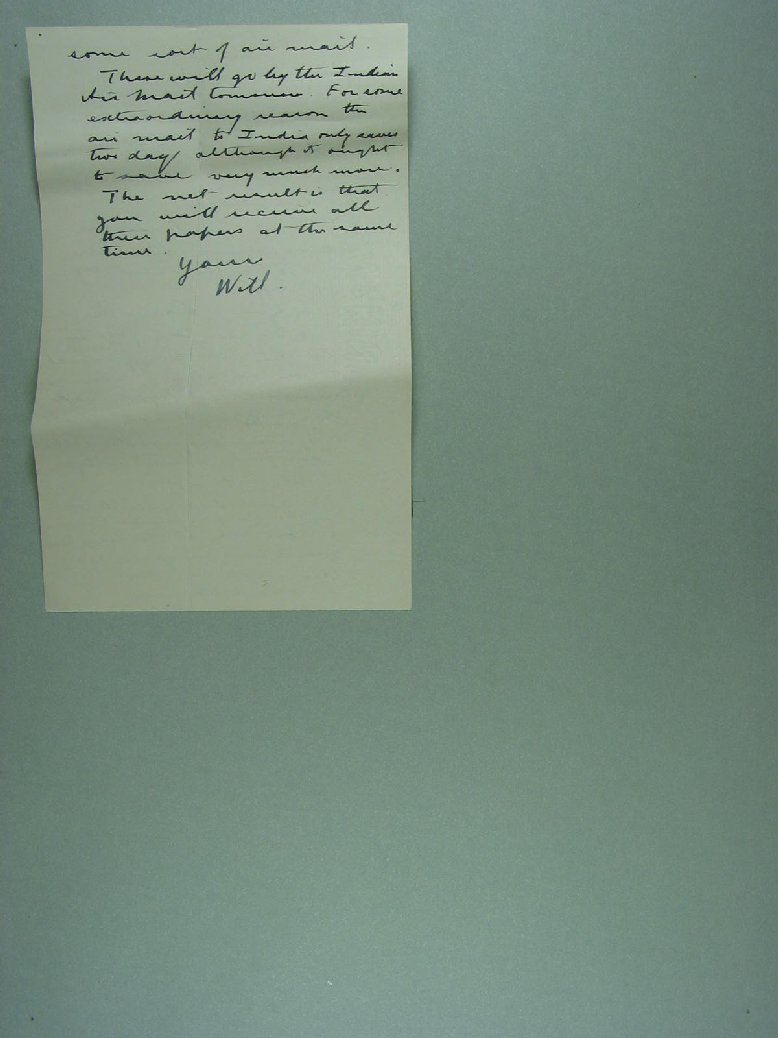 some sort of air mail.
These will go by the Indian
Air Mail tomorrow. For some
extraordinary reason the
air mail to India only saves
two days although it ought
to save very much more.
The net result is that
you will receive all
these papers at the same
time.
Yours
Will.